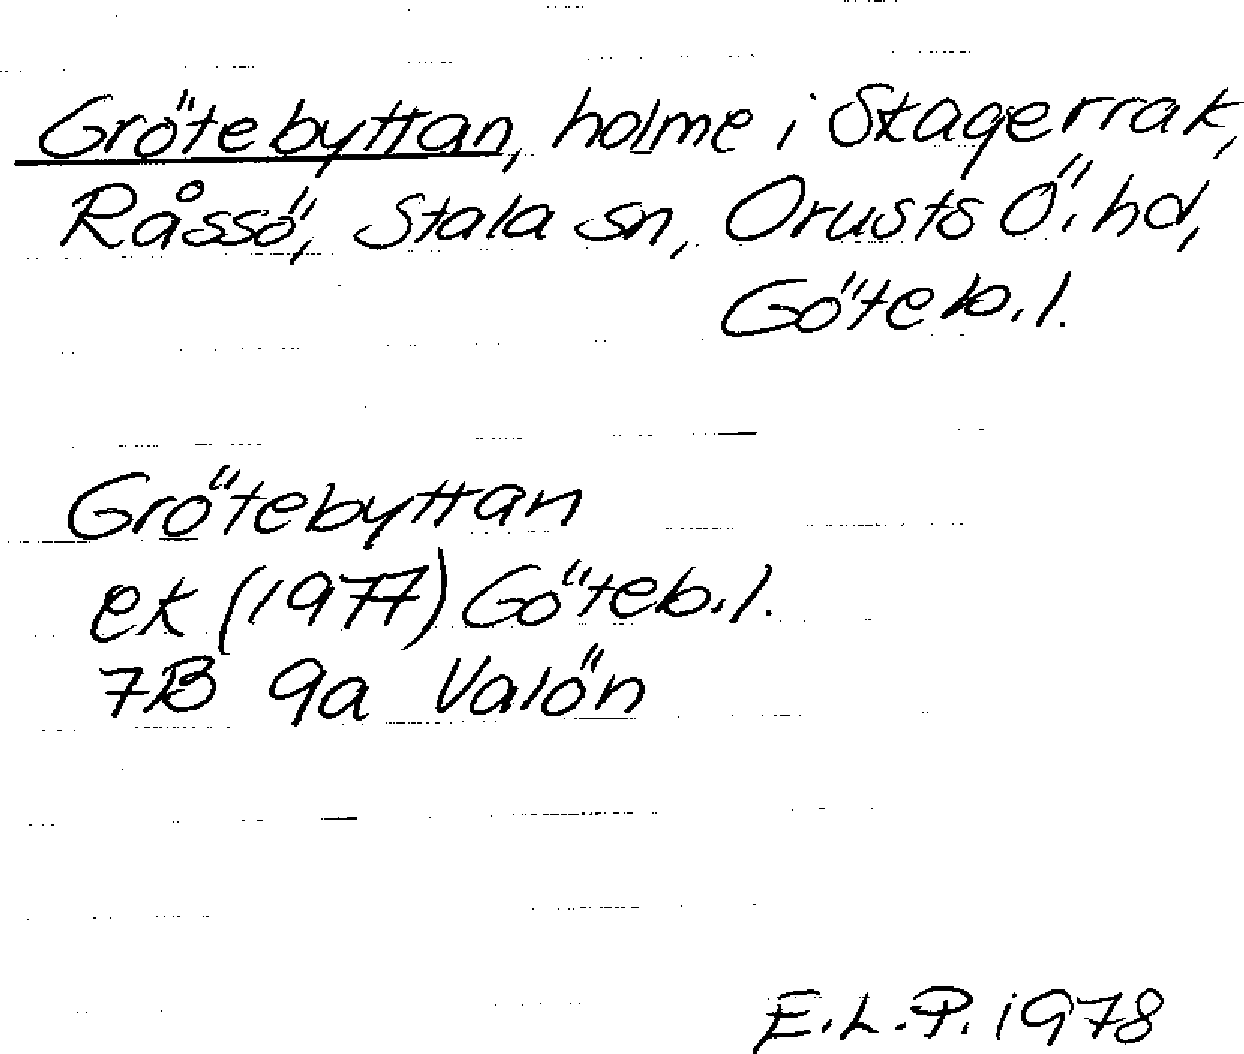 Grötebyttan, holme i Skagerrak,
Råssö, Stala sn, Orusts Ö. hd,
Göteb. l.
Grötebyttan
ek (1977) Göteb. l.
7B 9a Valön
E.L.P. 1978